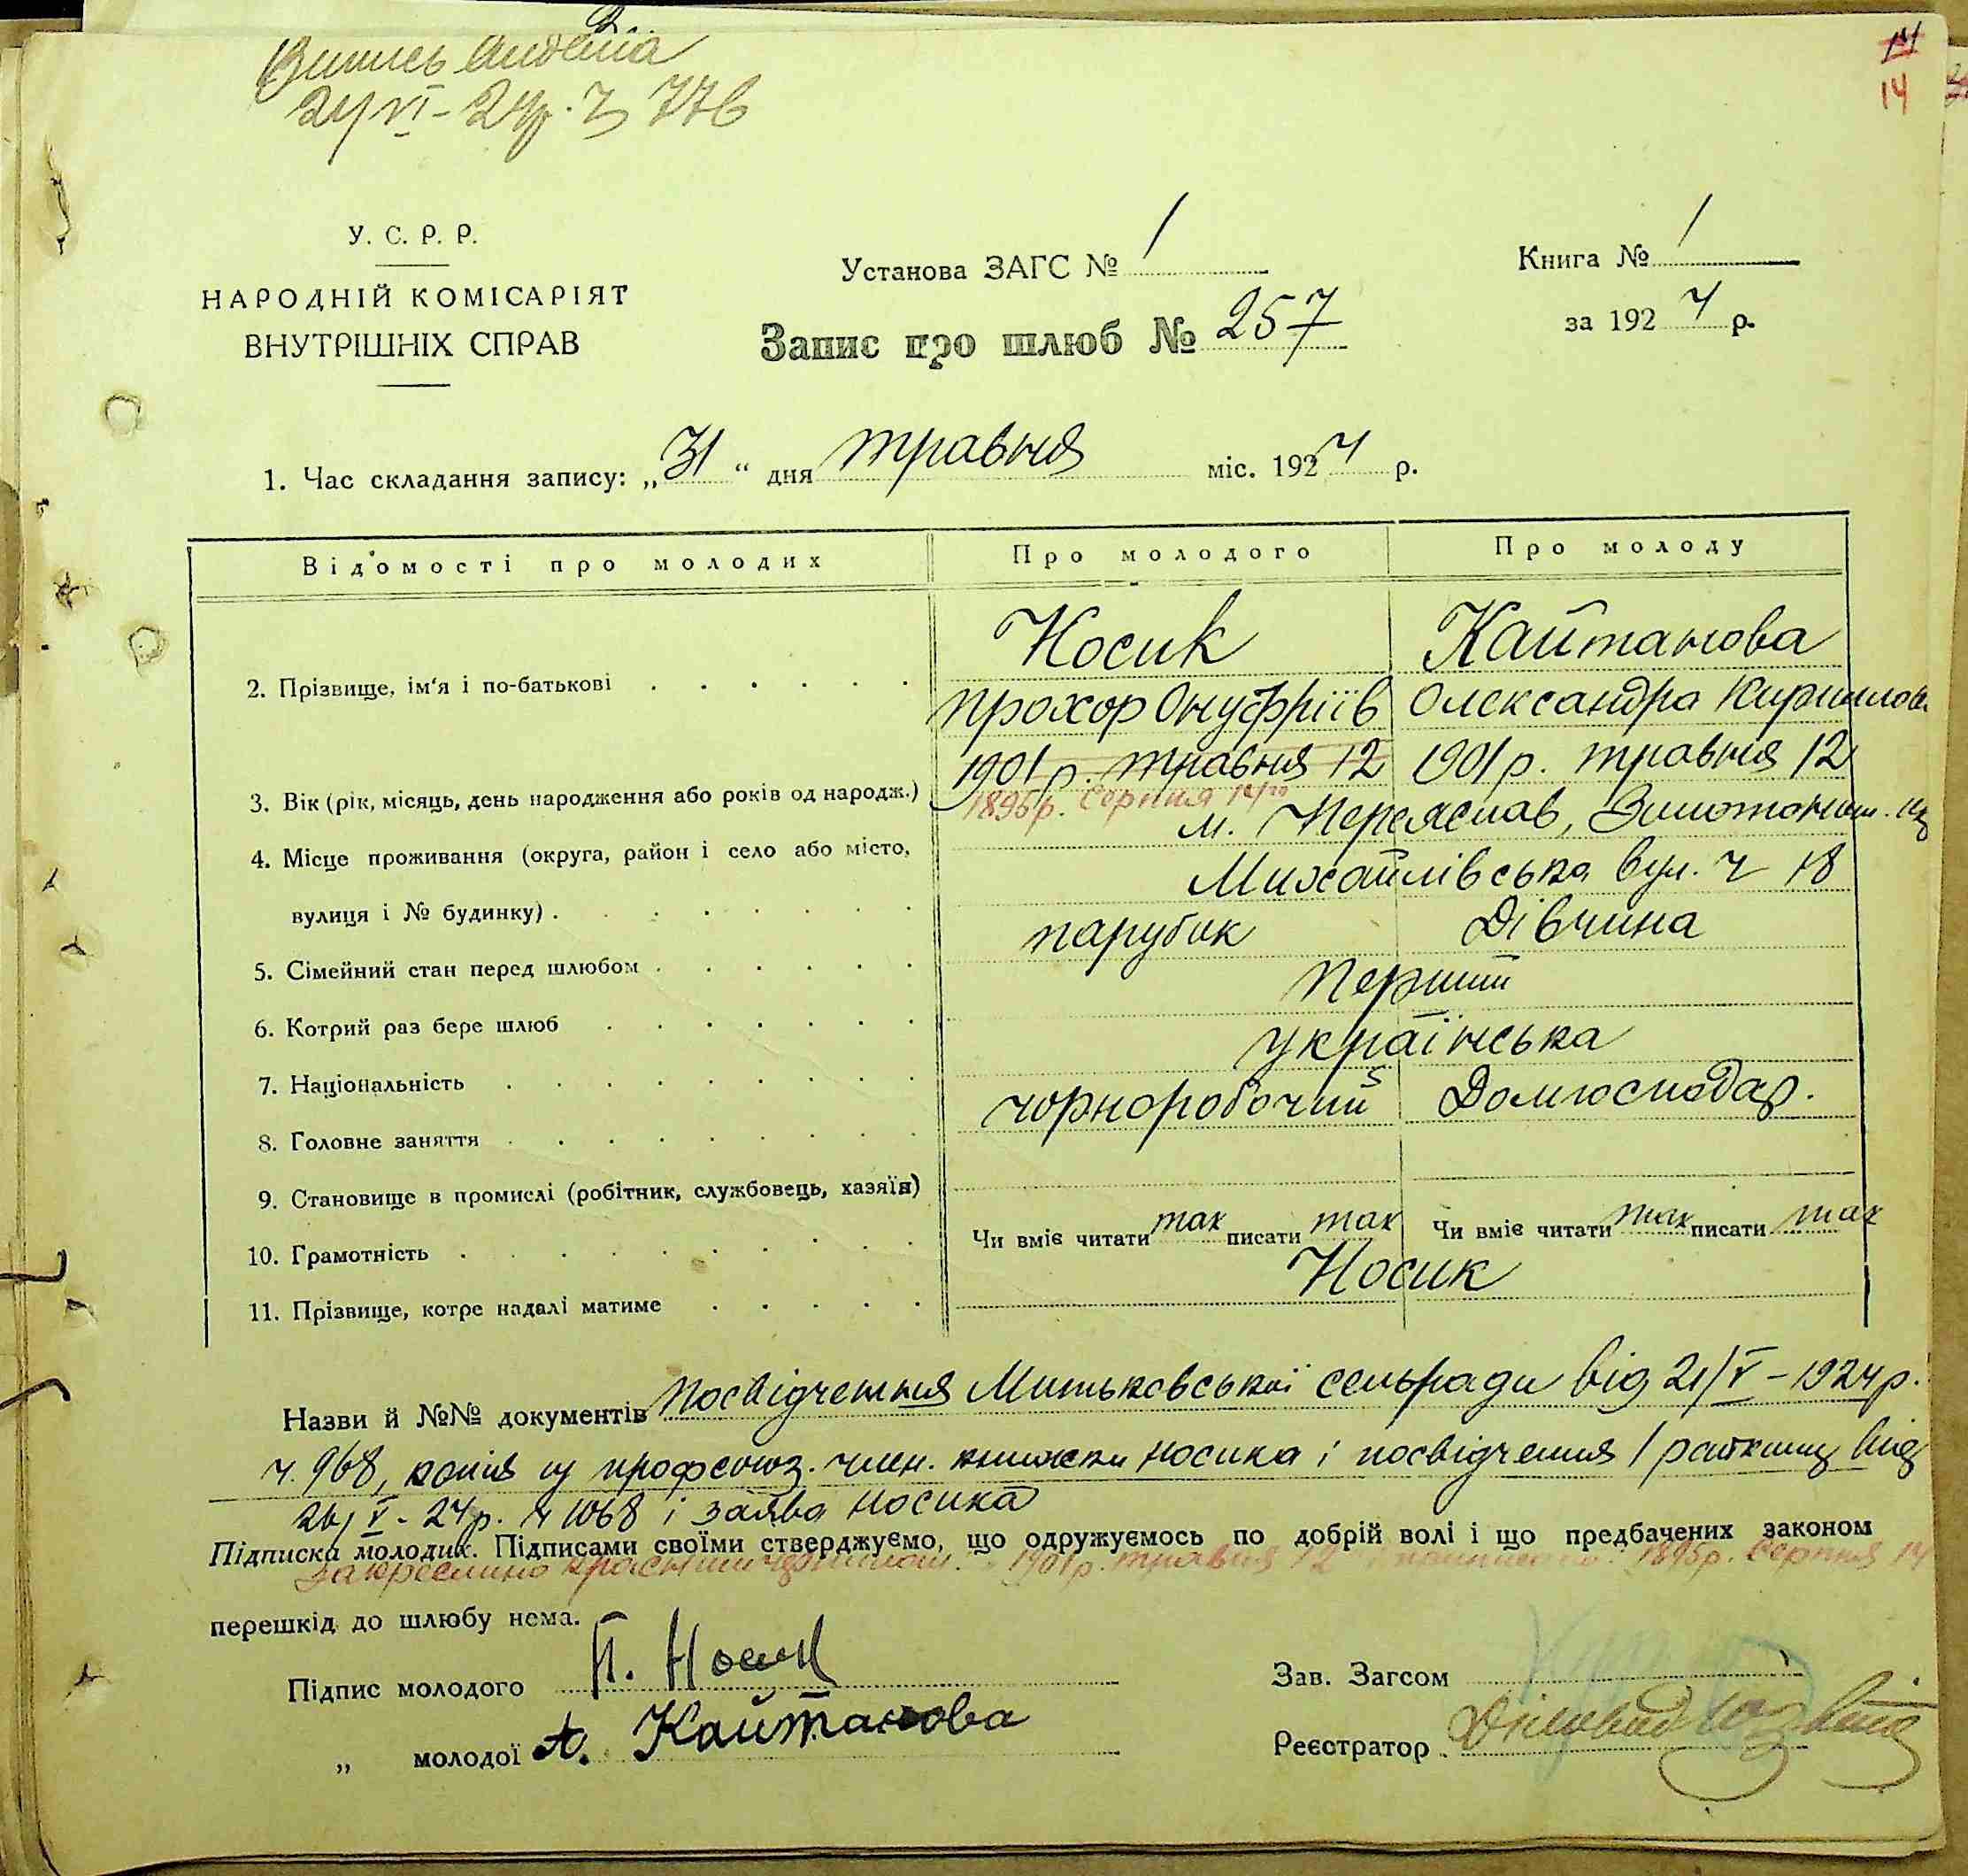 Випись видана
24/VI - 24р. Ч 776
14
У. С. Р. Р.
НАРОДНІЙ КОМІСАРІЯТ
ВНУТРІШНІХ СПРАВ
Установа ЗАГС № 1
Книга № 1
Запис про шлюб № 257
за 1924 р.
1. Час складання запису: „31“ дня травня міс. 1924 р.
Відомості про молодих Про молодого Про молоду
Носик Кайтанова
2. Прізвище, ім'я і по-батькові Прохор Онуфріїв Олександра Кирилов.
1901 р. травня 12 1901 р. травня 12
3. Вік (рік, місяць, день народження або років од народж.) 1895 р. Серпня
4. Місце проживання (округа, район і село або місто, м. Переяслав,
вулиця і № будинку) Михайлівська вул. ч 18
5. Сімейний стан перед шлюбом парубок Дівчина
6. Котрий раз бере шлюб Перший
7. Національність українська
8. Головне заняття чорноробочий Домгосподар.
9. Становище в промислі (робітник, службовець, хазяїн)
10. Грамотність Чи вміє читати так писати так Чи вміє читати так писати так
11. Прізвище, котре надалі матиме Носик
Назви й №№ документів Посвідчення сельради від 21/V - 1924 р.
ч. 968, копія профсоюз. член. книжки Носика і посвідчення від
26/V - 24 р. ч 1068 і заява Носика
Підписка молодих. Підписами своїми стверджуємо, що одружуємось по добрій волі і що предбачених законом
Закреслино 1901 р. травня 12 1895 р. Серпня 14
перешкід до шлюбу нема.
Підпис молодого П. Носик
Зав. Загсом
„ молодої А. Кайтанова
Реєстратор